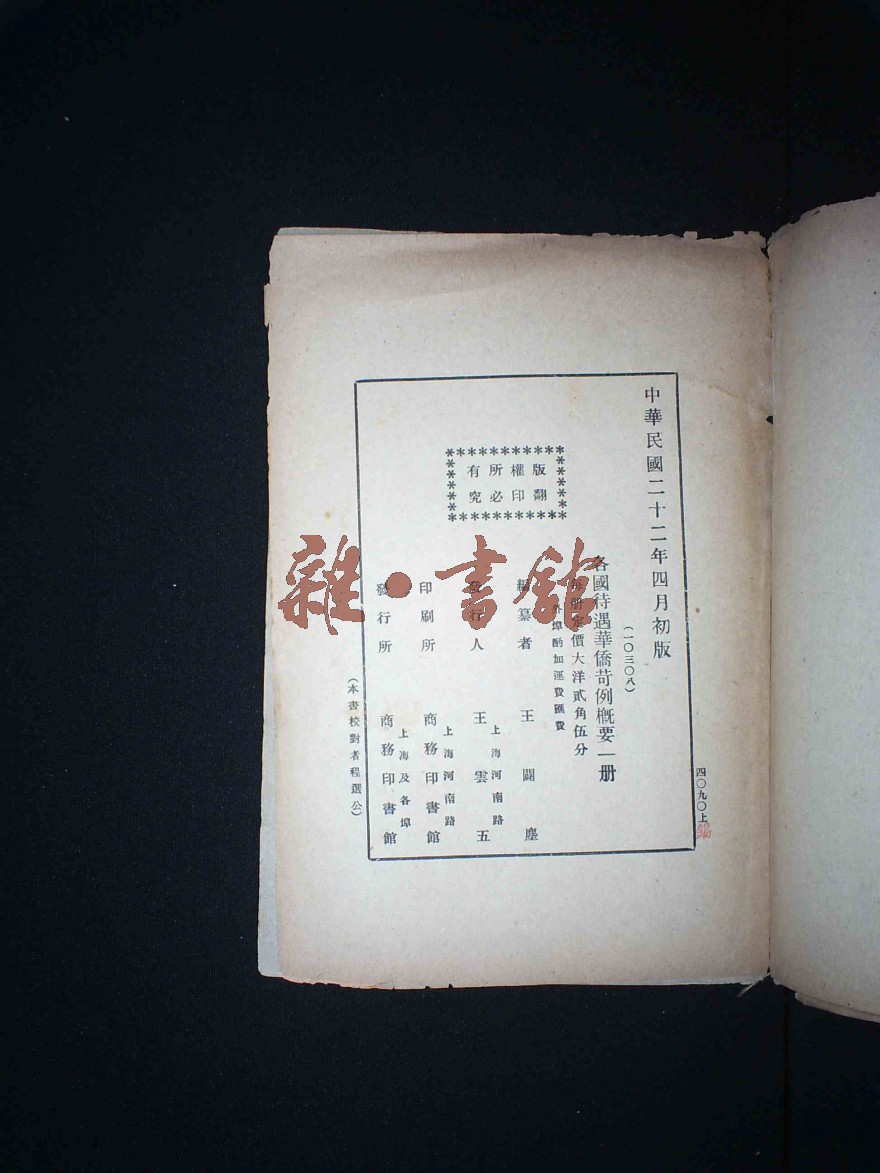 中華民國二十二年四月初版
四〇九〇上
(一〇三〇八)
各國待遇華僑苛例概要一册
每册定價大洋貳角伍分
外埠酌加運費匯費
版權所有
翻印必究
編纂者 王闢塵
上海河南路
發行人 王雲五
上海河南路
印刷所 商務印書館
上海及各埠
發行所 商務印書館
(本書校對者程選公)
雜·書館